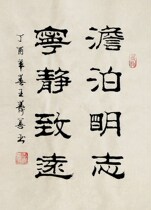 澹泊明志
寧静致遠
丁酉年